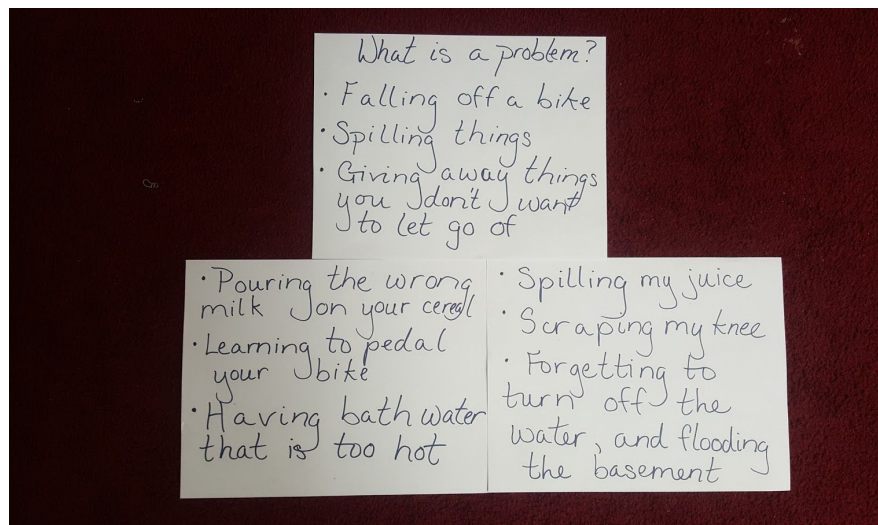 What is a problem?
· Falling off a bike
· Spilling things
· Giving away things
you don't want
to let go of
· Pouring the wrong
milk on your cereal
· Learning to pedal
your bike
· Having bath water
that is too hot
· Spilling my juice
· Scraping my knee
· Forgetting to
turn off the
water, and flooding
the basement